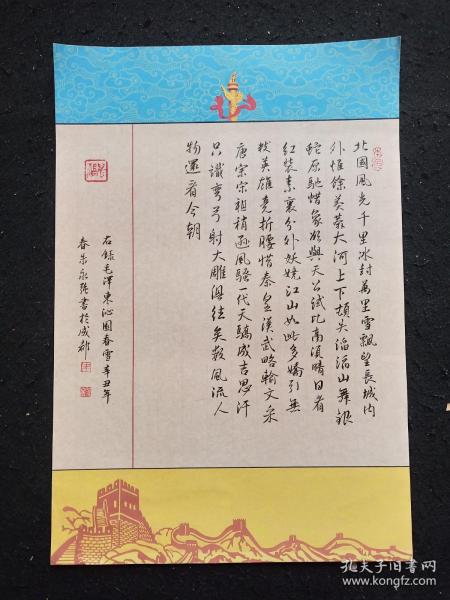 北國風光千里冰封萬里雪飄望長城內
外惟餘莽莽大河上下頓失滔滔山舞銀
蛇原馳蜡象欲與天公試比高須晴日看
紅裝素裹分外妖嬈江山如此多嬌引無
數英雄竞折腰惜秦皇漢武略輸文采
唐宗宋祖稍遜風騷一代天驕成吉思汗
只識彎弓射大雕俱往矣數風流人
物還看今朝
右錄毛澤東沁園春雪辛丑年
春朱永强書於成都
孔夫子旧书网
www.kongfz.com